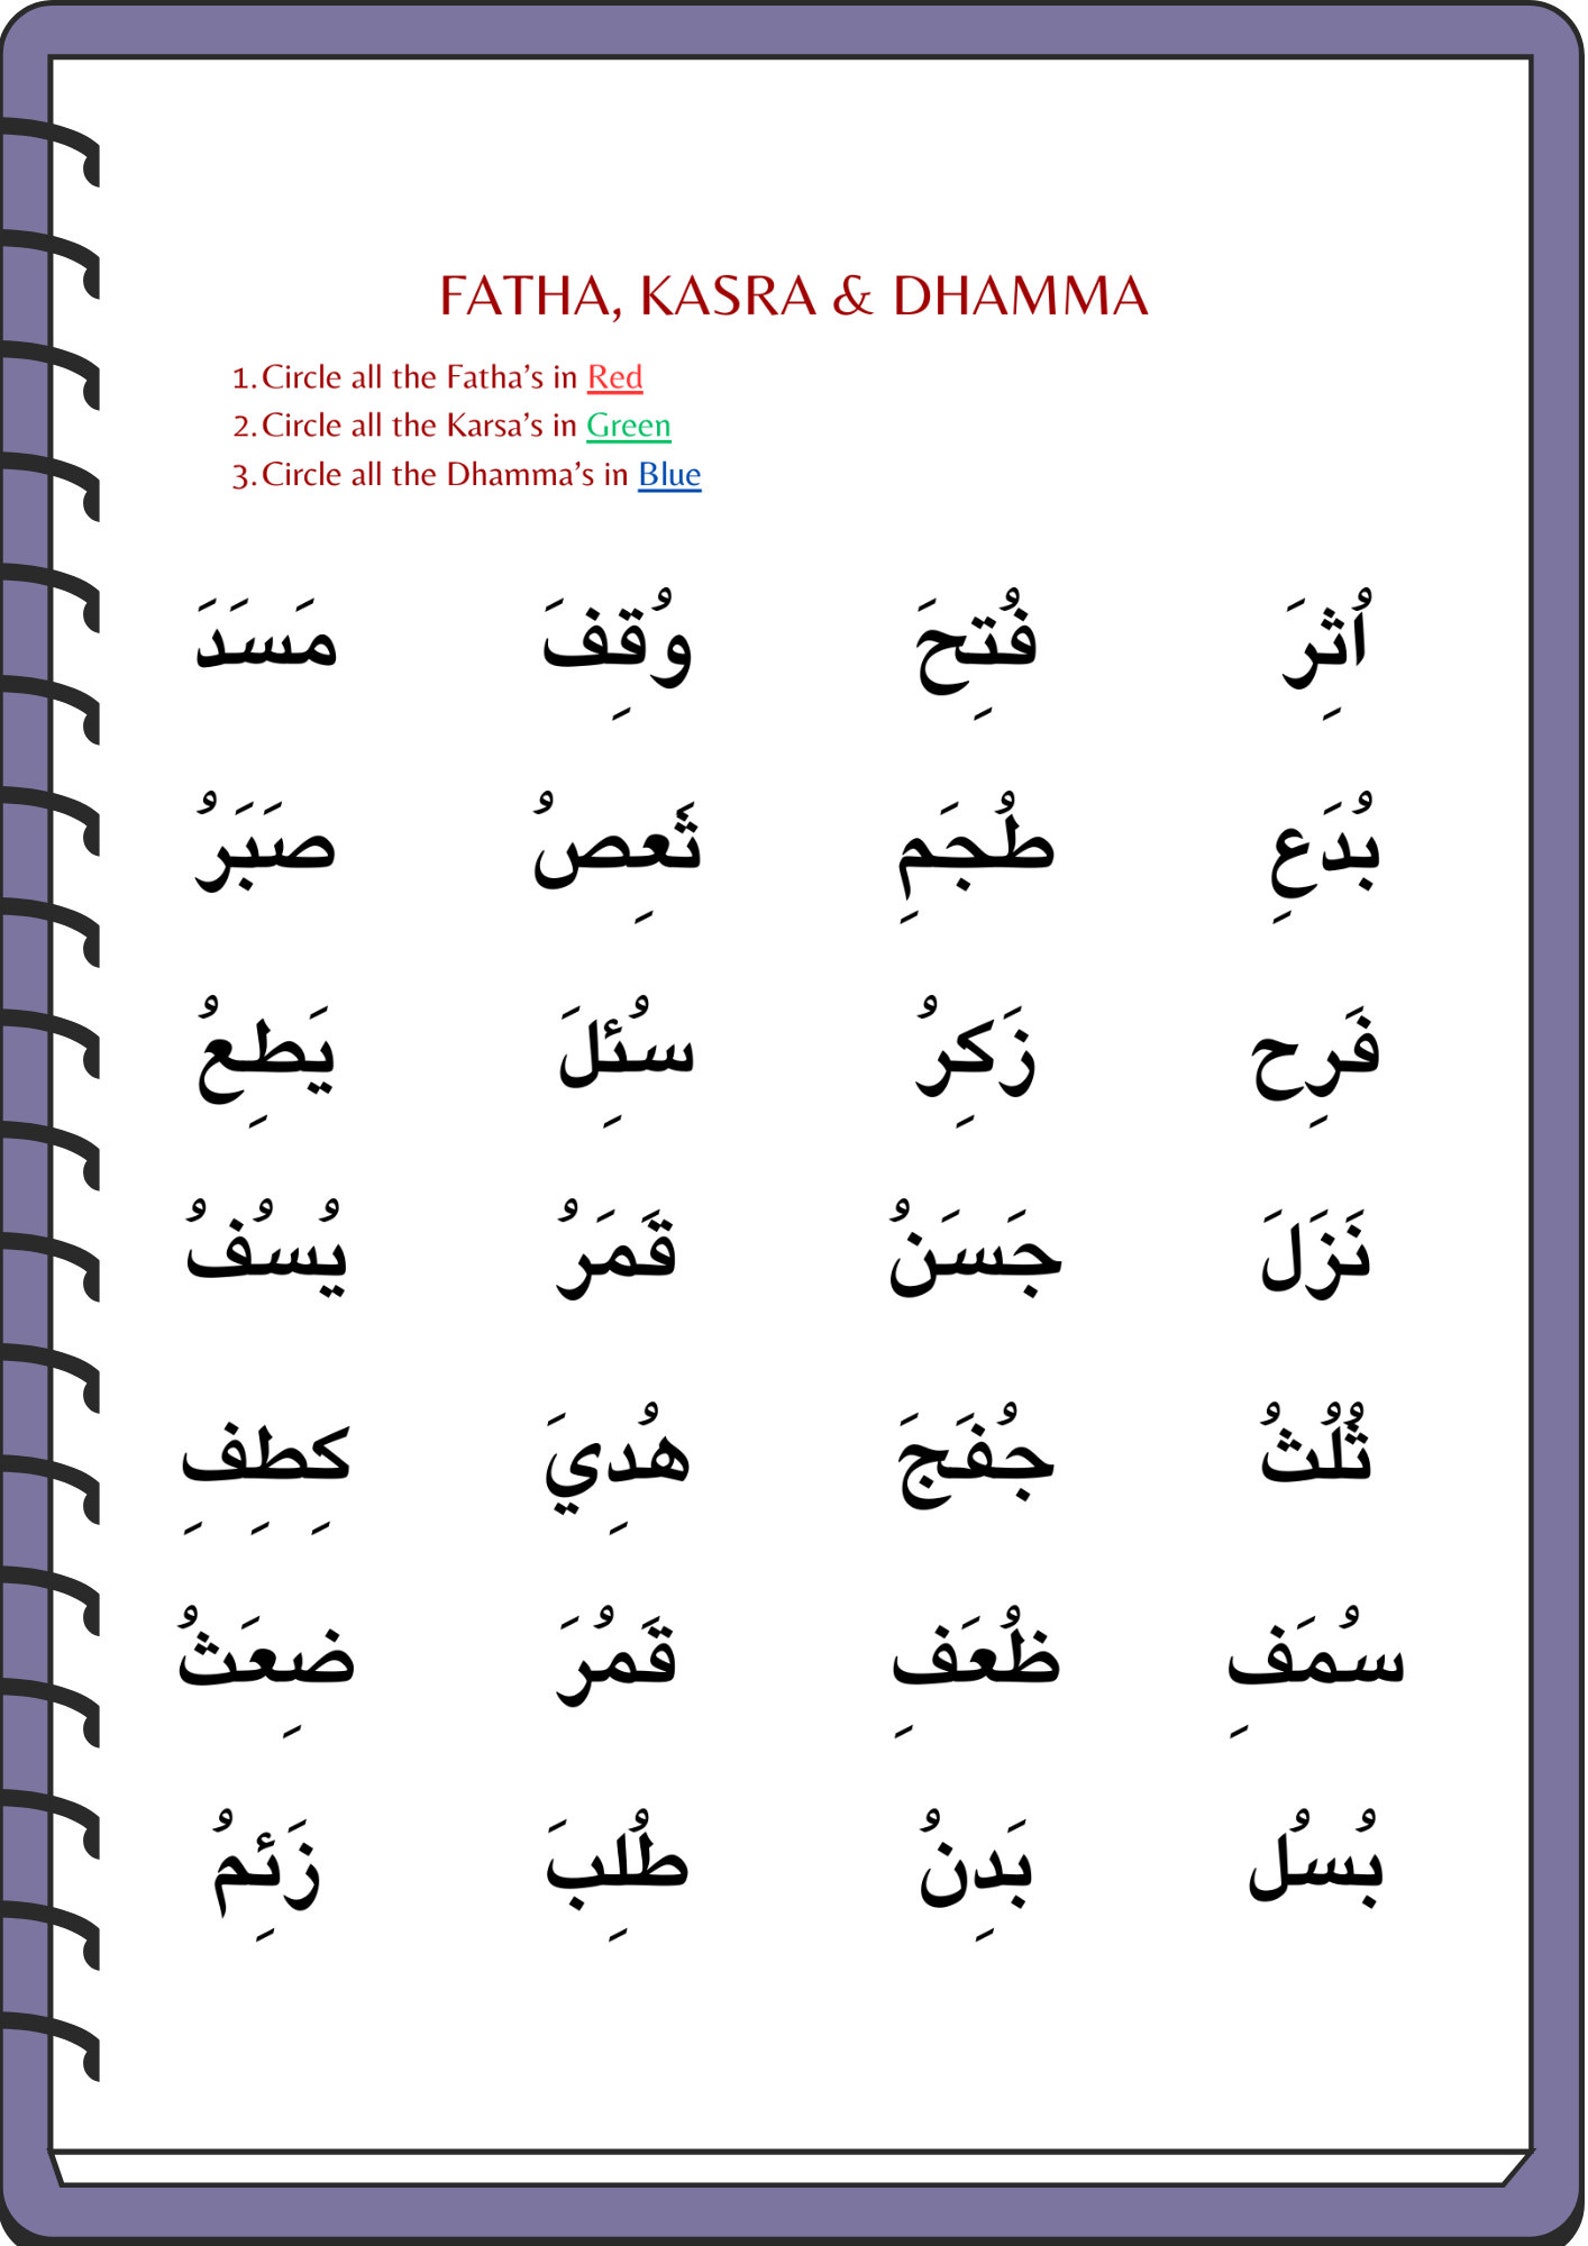 FATHA, KASRA & DHAMMA
1. Circle all the Fatha’s in Red
2. Circle all the Karsa’s in Green
3. Circle all the Dhamma’s in Blue
اُثِرَ فُتِحَ وُقِفَ مَسَدَ
بُدَعِ طُجَمِ ثَعِصُ صَبَرُ
فَرِح زَكِرُ سُئِلَ يَطِعُ
نَزَلَ جَسَنُ قَمَرُ يُسُفُ
ثُلُثُ جُفَجَ هُدِيَ كِطِفِ
سُمَفِ ظُعَفِ قَمُرَ ضِعَثُ
بُسُل بَدِنُ طُلِبَ زَئِمُ